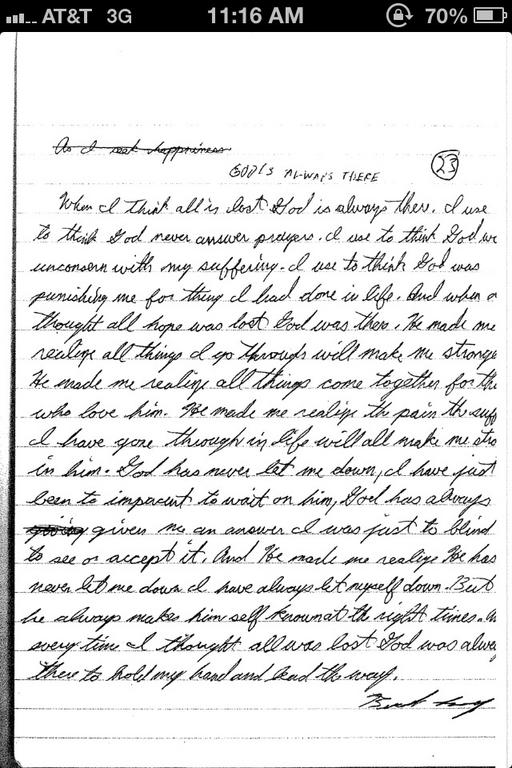 AT&T 3G 11:16 AM 70%
As I seek happiness
GOD IS ALWAYS THERE 23
When I think all is lost God is always there. I use
to think God never answer prayers. I use to think God we
unconsern with my suffering. I use to think God was
punishing me for thing I had done in life. And when a
thought all hope was lost God was there. He made me
realize all things I go through will make me stronge
He made me realize all things come together for the
who love him. He made me realize the pain the suff
I have gone through in life will all make me stro
in him. God has never let me down, I have just
been to impacent to wait on him, God has always
giving given me an answer I was just to blind
to see or accept it. And He made me realize He has
never let me down I have always let myself down. But
he always makes him self known at the right times. An
every time I thought all was lost God was alway
there to hold my hand and lead the way.